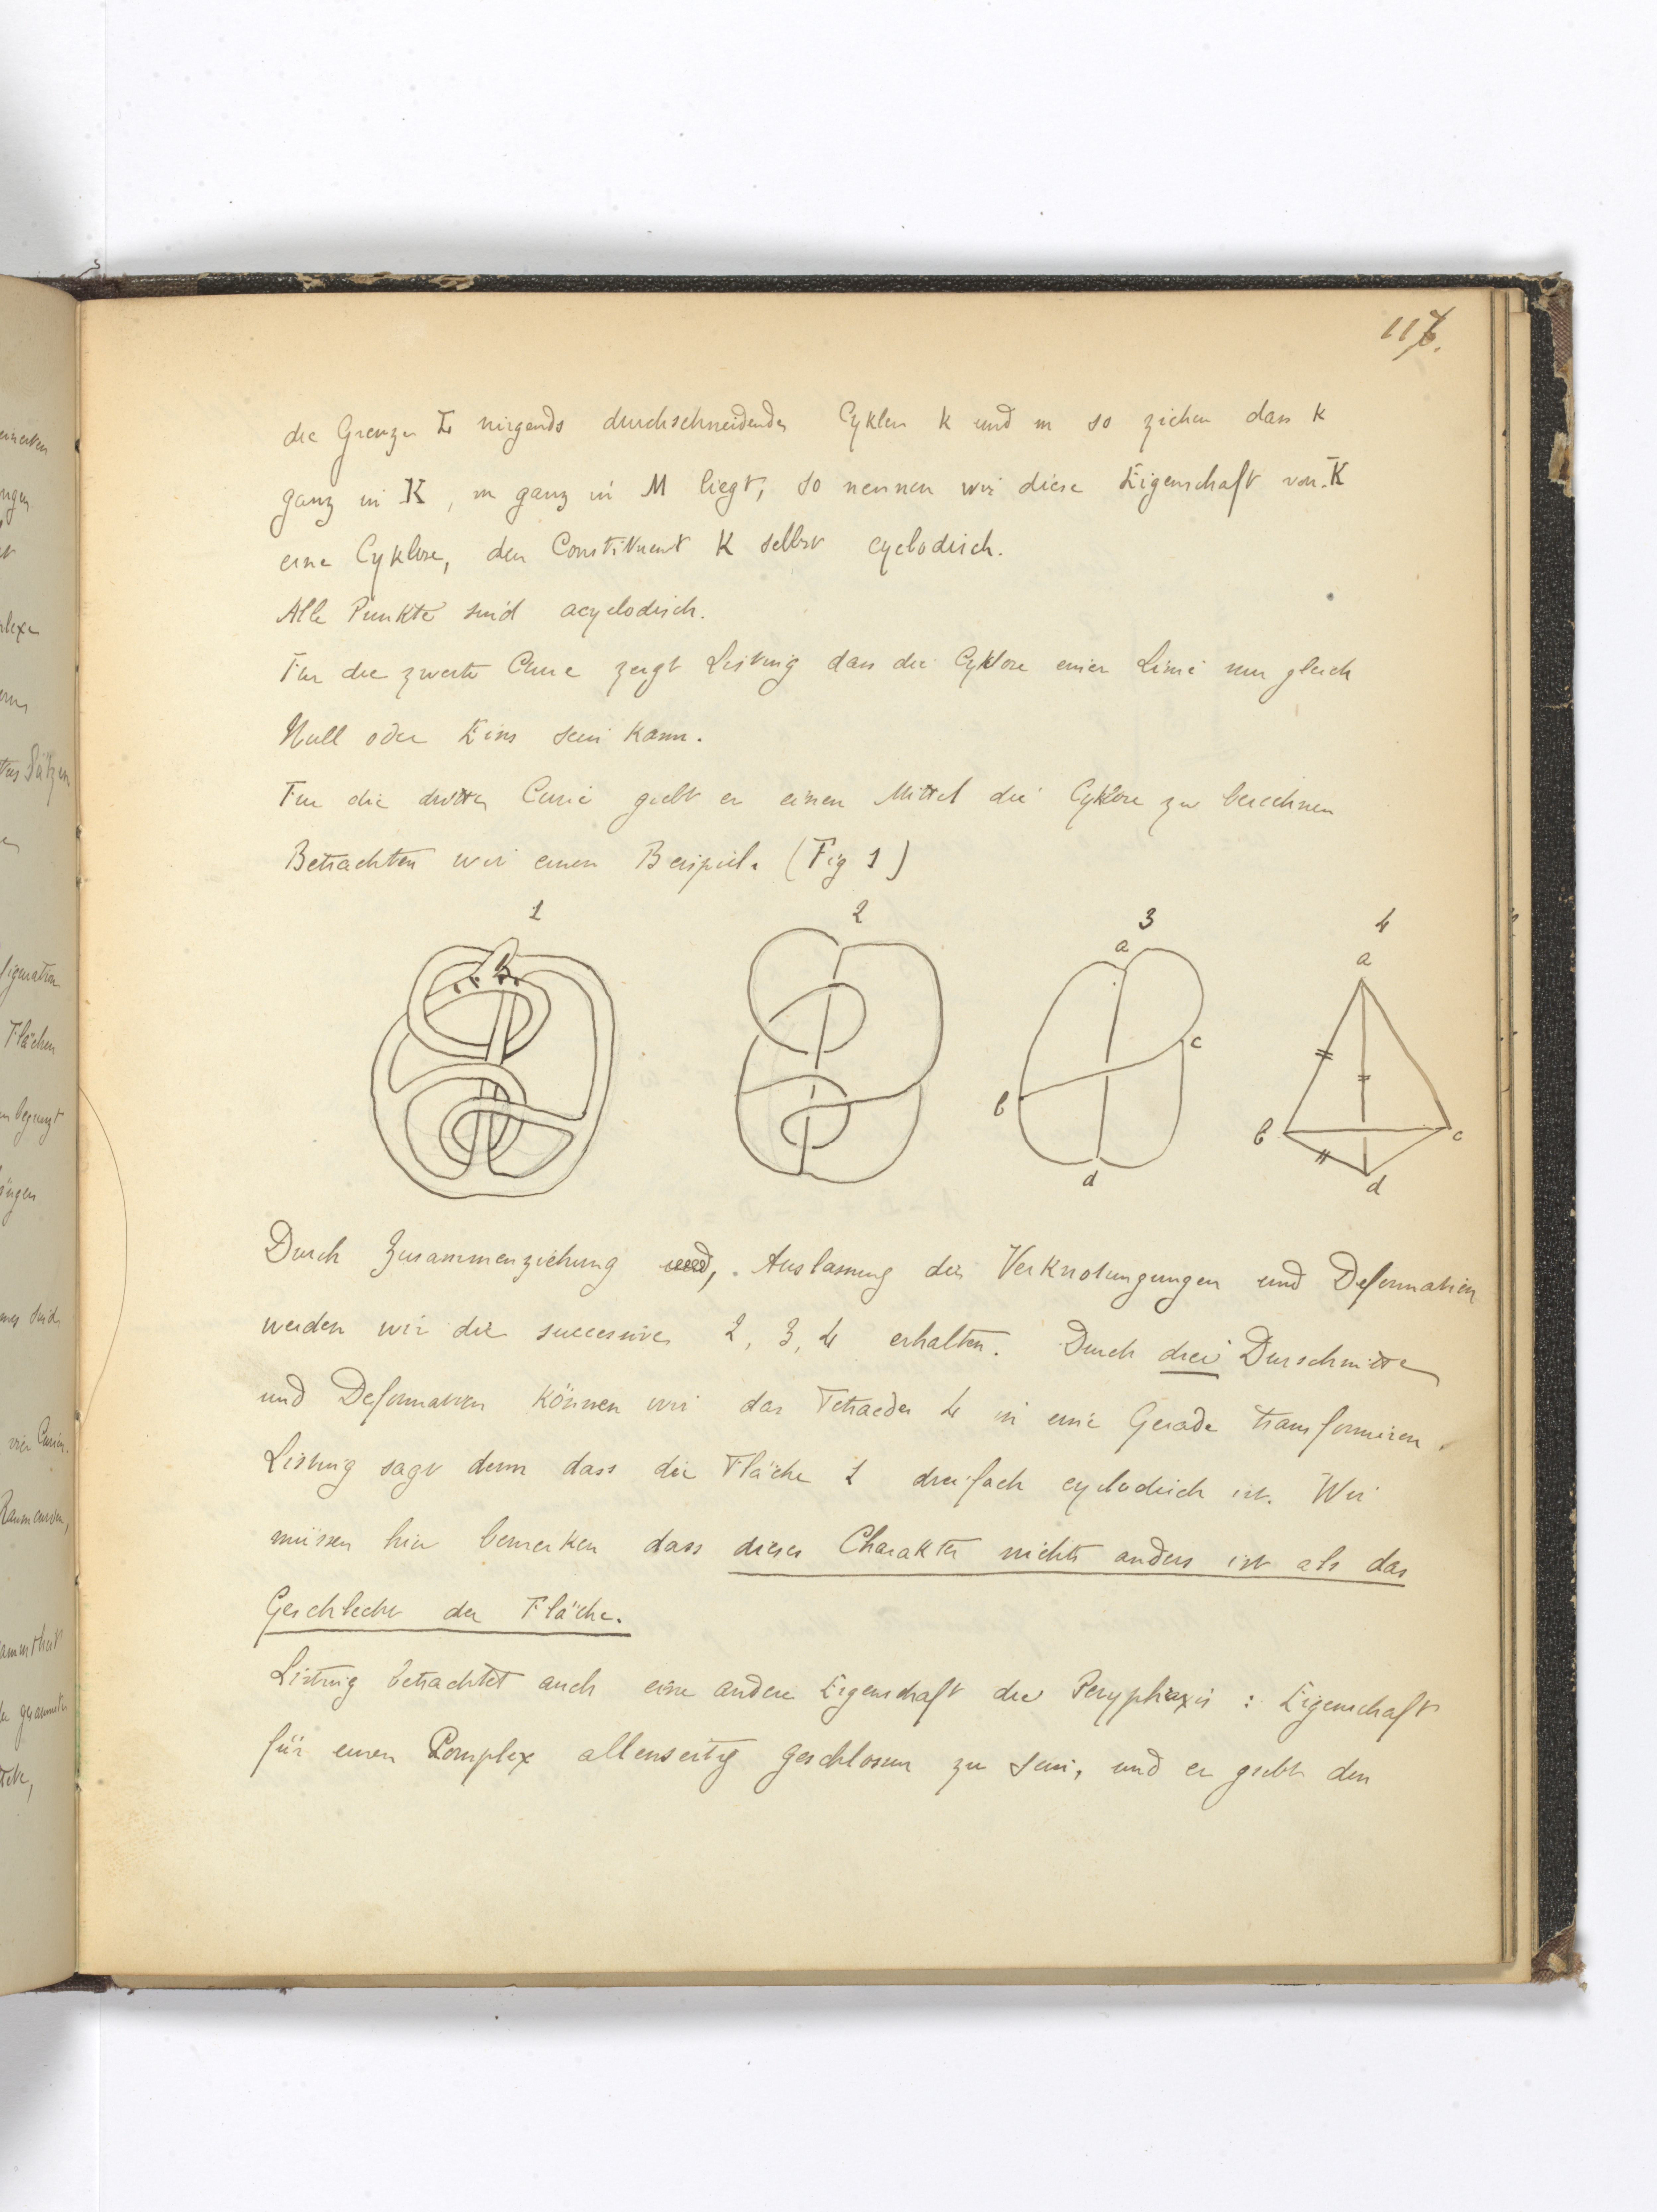 117.
die Grenzen L nirgends durchschneidendes Cyklen k und m so ziehen dass k
ganz in K, m ganz in M liegt, so nennen wir diese Eigenschaft von K
eine Cyklose, den Constituent K selbst cyclodisch.
Alle Punkte sind acyclodisch.
Für die zweite Curie zeigt Listing dass die Cyklose einer Linie nur gleich
Null oder Eins sein kann.
Für die dritte Curie giebt er einen Mittel die Cyklose zu berechnen
Betrachten wir einen Beispiel. (Fig 1)
1 2 3 4
a a
c
b b c
d d
Durch Zusammenziehung, Auslassung der Verknotungungen und Deformation
werden wir die successive 2, 3, 4 erhalten. Durch drei Durschnitte
und Deformation können wir das Tetraeder 4 in eine Gerade transformiren.
Listing sagt denn dass die Fläche 1 dreifach cyclodisch ist. Wir
müssen hier bemerken dass dieser Charakter nichts anders ist als das
Geschlecht der Fläche.
Listing betrachtet auch eine andere Eigenschaft die Peryphraxis : Eigenschaft
für einen Complex allenseitig geschlossen zu sein, und er giebt den